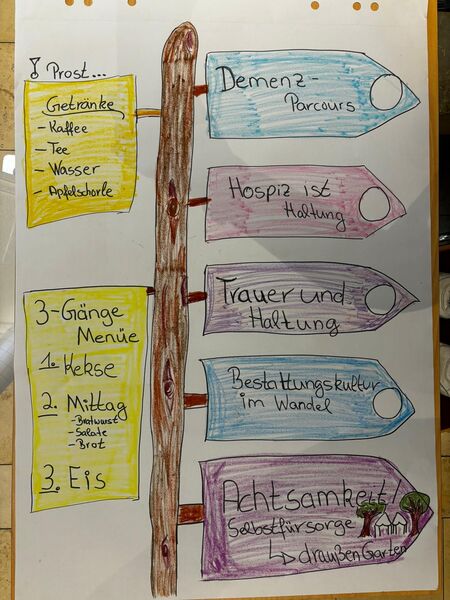 Prost...
Getränke
- Kaffee
- Tee
- Wasser
- Apfelschorle
3-Gänge
Menüe
1. Kekse
2. Mittag
- Bratwurst
- Salate
- Brot
3. Eis
Demenz-
Parcours
Hospiz ist
Haltung
Trauer und
Haltung
Bestattungskultur
im Wandel
Achtsamkeit/
Selbstfürsorge
↳ draußen Garten